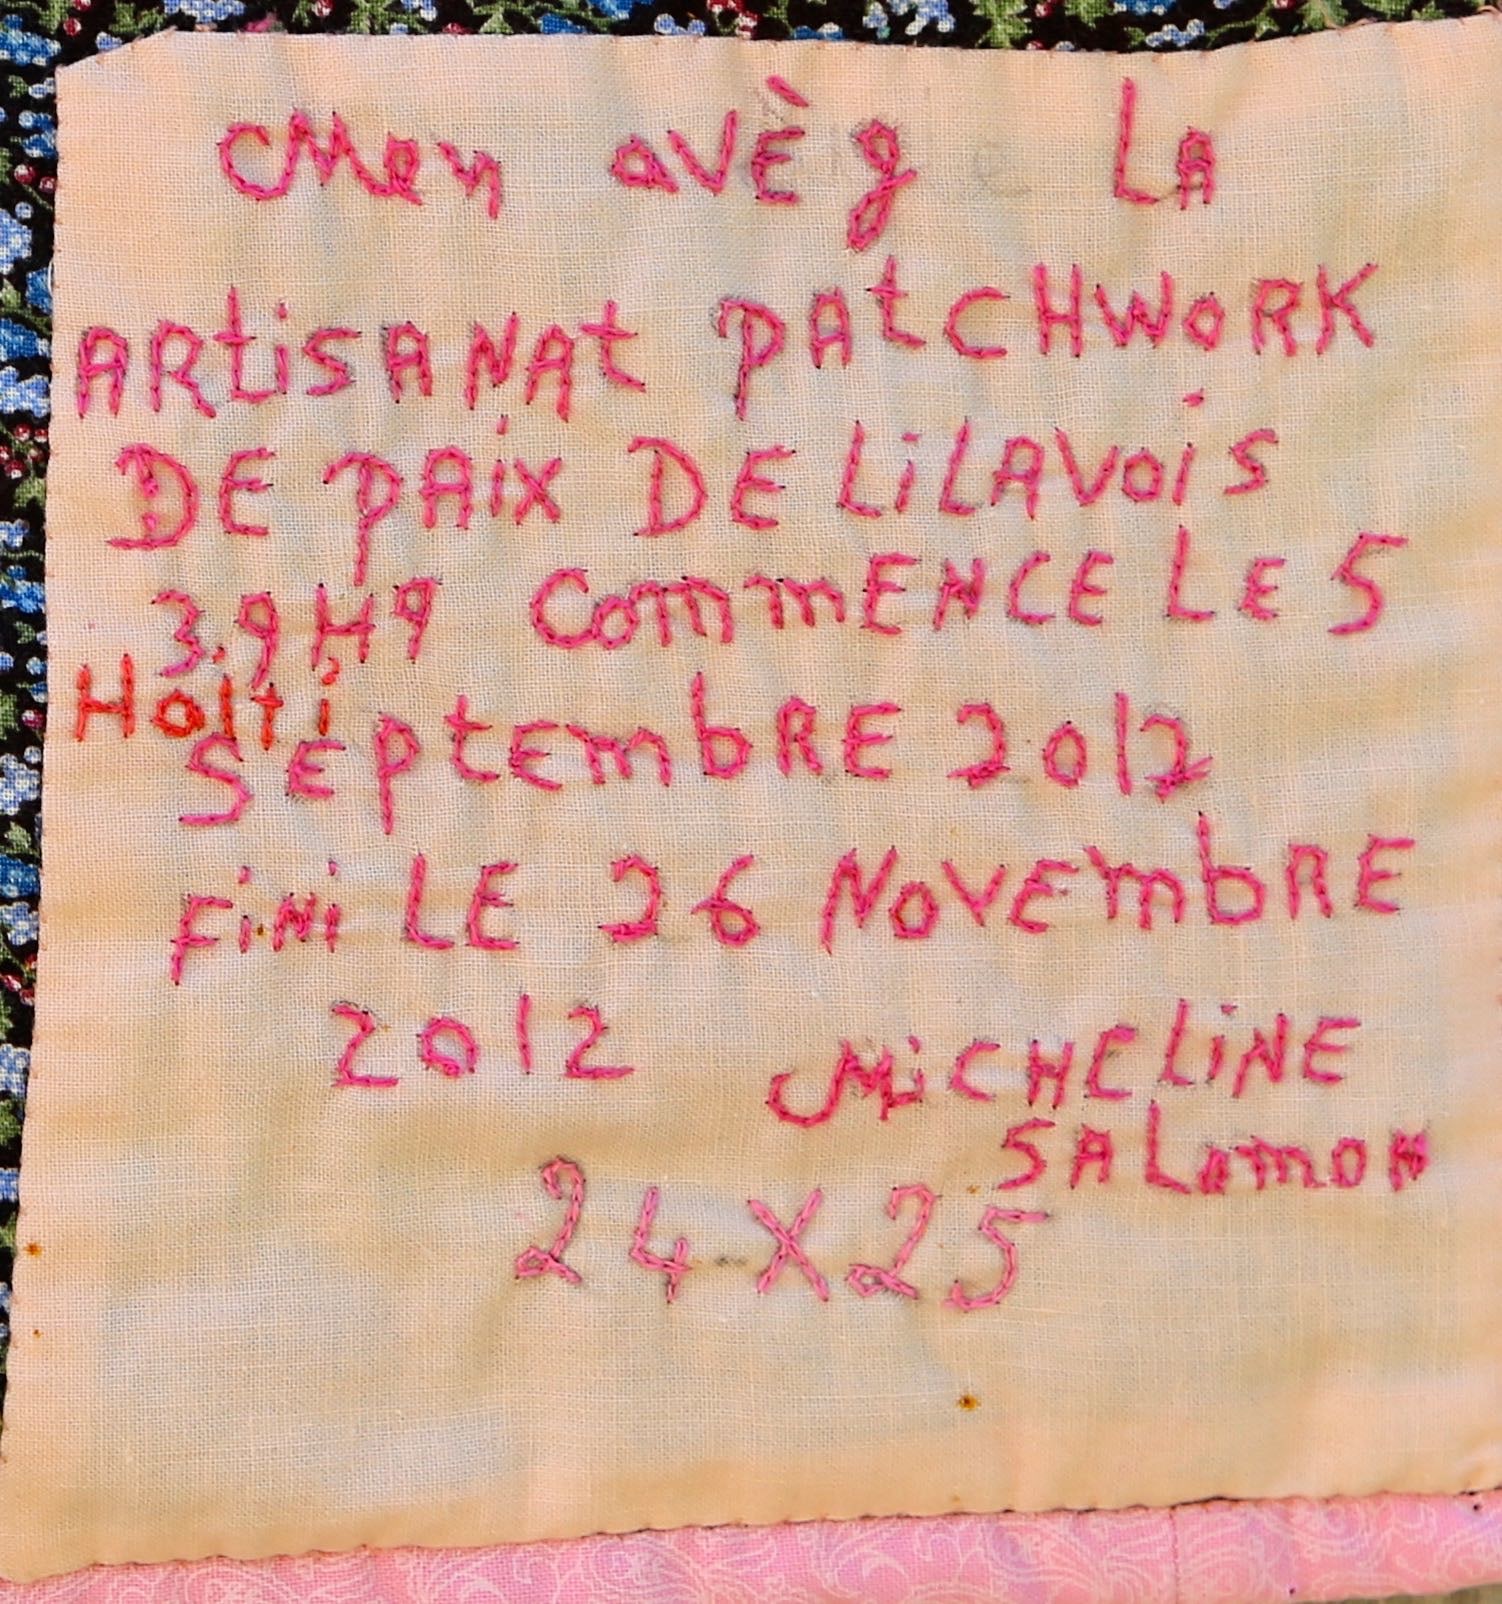 Men avèg LA
ARtiSANAt PAtCHWORK
DE PAiX DE LiLAVOiS
3.9H9 COmmENCE LE 5
Haiti
SEPtEmbRE 2012
FiNi LE 26 NOVEmbRE
2012 MiCHELiNE
SALOmON
24 X 25